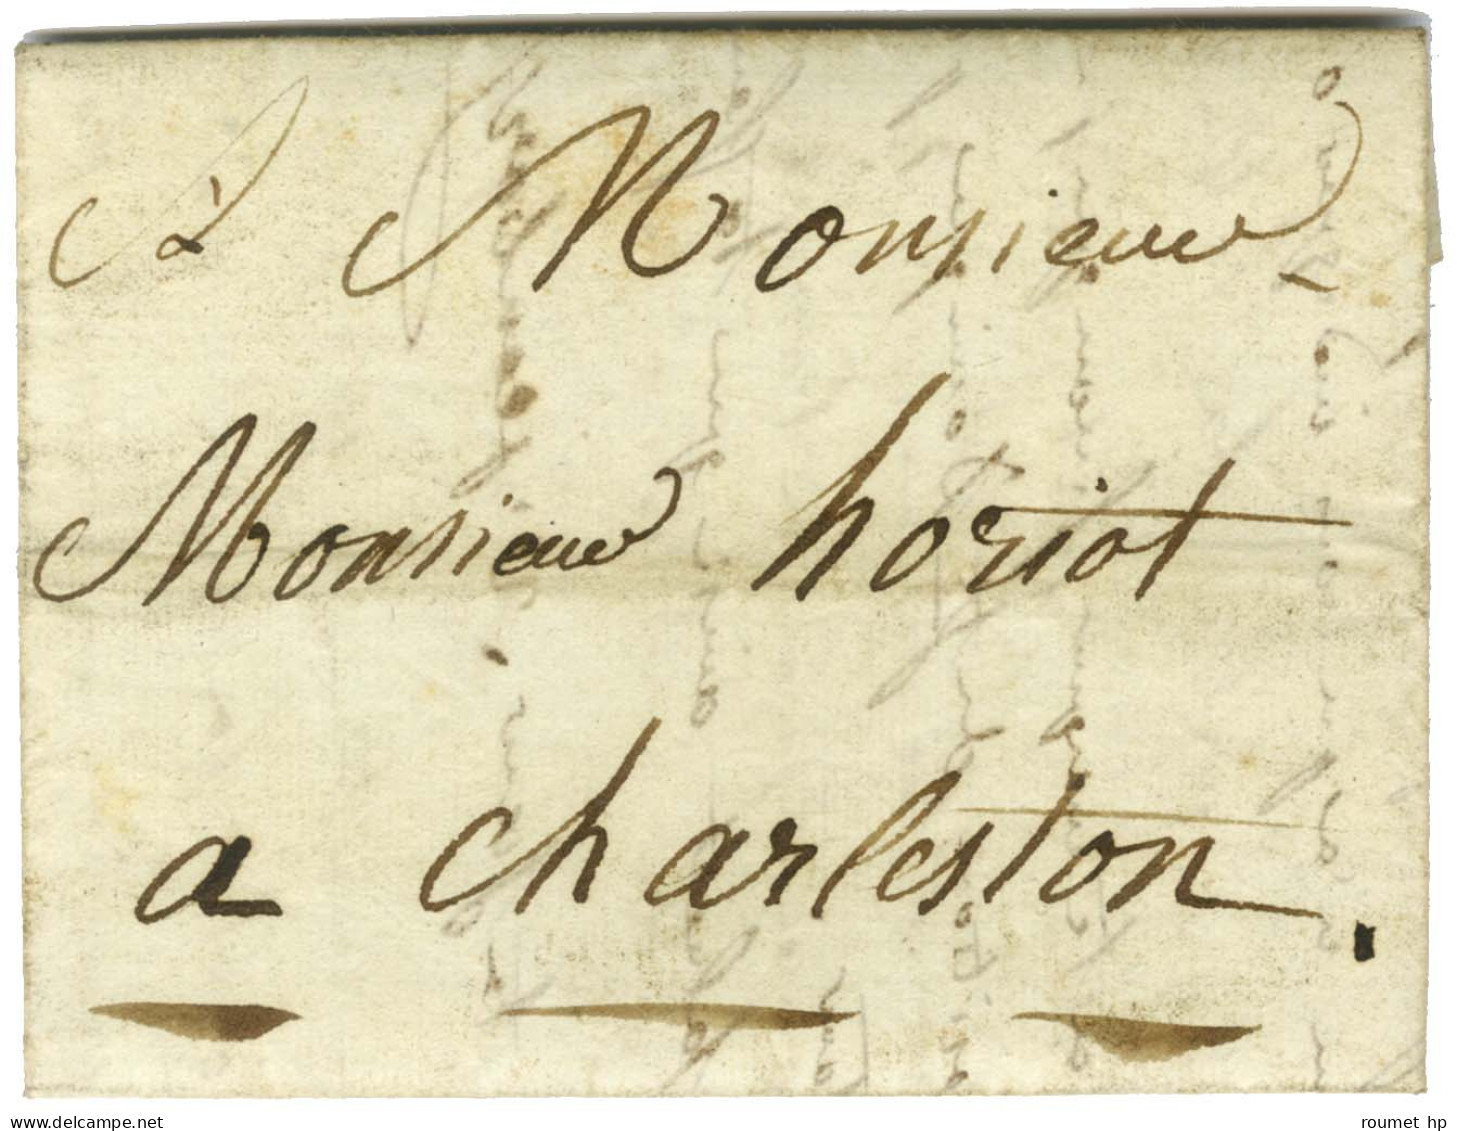 À Monsieur
Monsieur horiot
a charleston.
www.delcampe.net
roumet hp